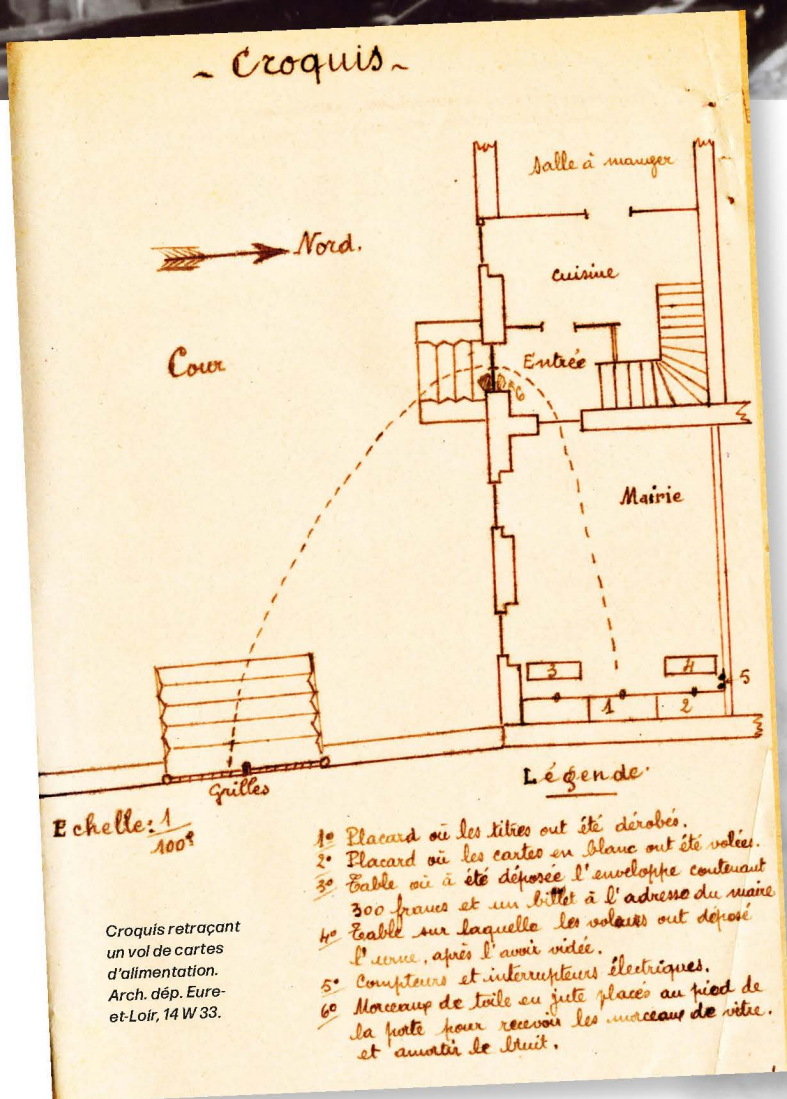 ~ Croquis ~
Salle à manger
Nord.
cuisine
Cour
Entrée
6
Mairie
3
4
5
1
2
Grilles
Légende.
Echelle: 1/100e
1° Placard où les titres ont été dérobés.
2° Placard où les cartes en blanc ont été volées.
3° Table où à été déposée l'enveloppe contenant
300 francs et un billet à l'adresse du maire
4° Table sur laquelle les voleurs ont déposé
l'urne, après l'avoir vidée.
5° Compteurs et interrupteurs électriques.
6° Morceaux de toile en jute placés au pied de
la porte pour recevoir les morceaux de vitre.
et amortir le bruit.
Croquis retraçant
un vol de cartes
d'alimentation.
Arch. dép. Eure-
et-Loir, 14 W 33.